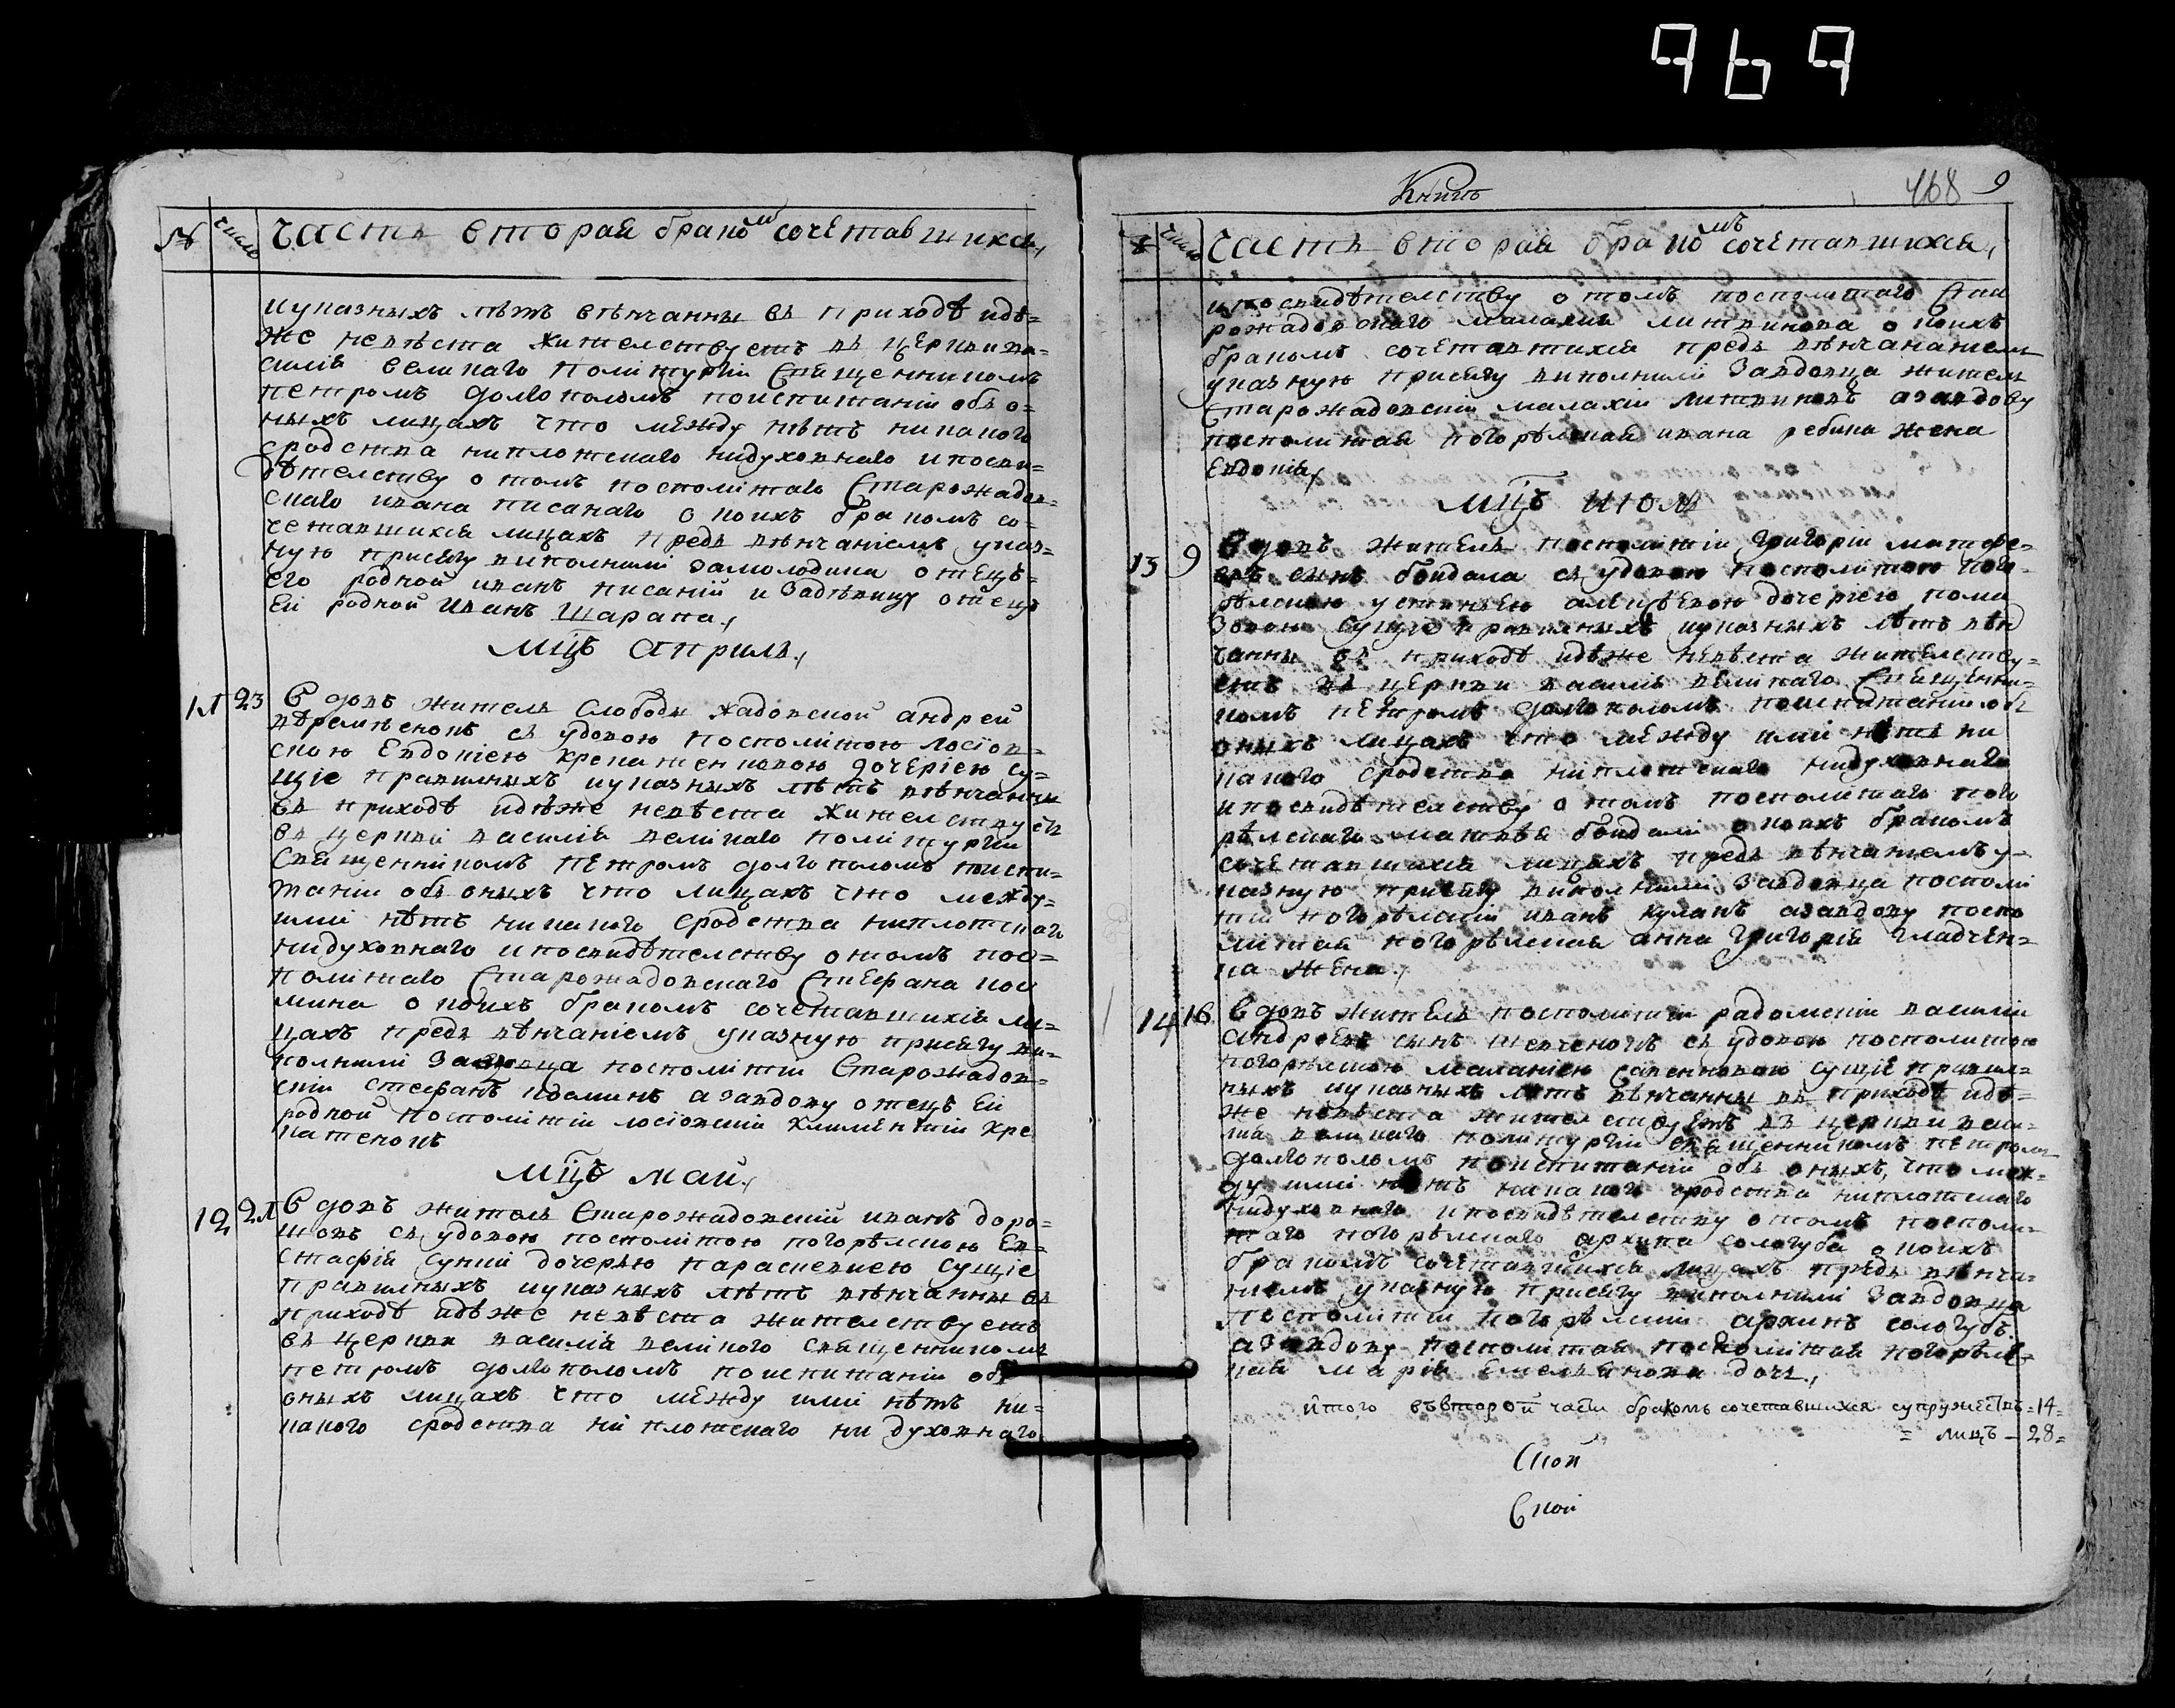 969
№ число Часть вторая бракомъ сочетавшихся
и указныхъ лѣтъ вѣнчанны въ приходѣ идѣ=
же невѣста жителствуетъ въ церкви ва=
силія великаго полтурги священникомъ
петромъ долгополомъ по испитаніи объ о=
ныхъ лицахъ что между нѣтъ никакого
сродства ни плотскаго ни духовнаго и по сви=
дѣтелству о томъ посполитаго Старожадов=
скаго ивана писанаго о коихъ бракомъ со=
четавшихся лицахъ предъ вѣнчаніемъ указ=
ную присягу виполнили за молодика отецъ=
его родной иванъ писаній и За дѣвицу отецъ
Еи родной Иванъ Шарапа
Мцъ априль
11 23 Вдовъ житель слободы жадовской андрей
Ефременовъ съ удовою посполитою лосіов=
скою Евдокіею дочеріею су=
щіе правилныхъ и указныхъ лѣтъ вѣнчанны
въ приходѣ идѣже невѣста жителствуетъ
въ церкви василія великаго полтургіи
Священникомъ петромъ долгополомъ по испи=
таніи объ оныхъ что лицахъ что между=
ими нѣтъ никакого сродства ни плотскаго
ни духовнаго и по свидѣтелству о томъ пос=
политаго Старожадовскаго Стефана
мина о коихъ бракомъ сочетавшихся ли=
цахъ предъ вѣнчаніемъ указную присягу ви=
полнили За вдовца посполитіи Старожадов=
скіи стефанъ а за вдову отецъ Еи
родной посполитіи лосіовскіи климентіи хре
патеновъ
Мцъ май
12 21 Вдовъ житель Старожадовскій иванъ доро=
шовъ съ удовою посполитою погорѣлскою Ев=
стафія сукиi дочерью параскевиею сущіе
правилныхъ и указныхъ лѣтъ вѣнчанны въ
приходѣ идѣже невѣста жителствуетъ
въ церкви василія великого священникомъ
петромъ долгополомъ по испитаніи объ
оныхъ лицахъ что между ими нѣтъ ни=
какого сродства ни плотскаго ни духовнаго
468 9
№ число Часть вторая бракомъ сочетавшихся
и по свидѣтелству о томъ посполитаго Ста
рожадовскаго малахия литвинова о коихъ
бракомъ сочетавшихся предъ вѣнчаниемъ
указную присягу виполнили За вдовца житель
Старожадовскіи малахіи литвиновъ а за вдову
посполитая погорѣлская ивана рябика жена
Евдокия
Мцъ июль
13 9 Вдовъ житель посполитіи григоріи матфе=
евъ сынъ бондала съ удовою посполитою пого
рѣлскою устиньею дочеріего
сущіе правилныхъ и указныхъ лѣтъ вѣн
чанны въ приходѣ идѣже невѣста жителству=
етъ въ церкви василія великаго Священни=
комъ петромъ долгополомъ по испитаніи объ
оныхъ лицахъ что между ими нѣтъ ни
какого сродства ни плотскаго ни духовнаго
и по свидѣтелству о томъ посполитаго пого
рѣлскаго матвѣя бондали о коихъ бракомъ
сочетавшихся лицахъ предъ вѣнчаниемъ у=
казную присягу виполнили За вдовца посполи
тіи погорѣлскіи иванъ кулакъ а за вдову поспо
литая погорѣлская анна григорія гладчен=
ка жена
14 16 Вдовъ житель посполитіи радомскіи василіи
андреевъ сынъ шевченокъ съ удовою посполитою
погорѣлскою меланиею сущіе правил=
ныхъ и указныхъ лѣтъ вѣнчанны въ приходѣ идѣ=
же невѣста жителствуетъ въ церкви васи=
лія великаго полтургіи священникомъ петромъ
долгополомъ по испитаніи объ оныхъ, что меж=
ду ими нѣтъ никакого сродства ни плотскаго
ни духовнаго и по свидѣтелству о томъ посполи=
таго погорѣлскаго архипа сологуба о коихъ
бракомъ сочетавшихся лицахъ предъ вѣнча=
ниемъ указную присягу виполнили За вдовца
посполитіи погорѣлскіи архипъ сологубъ
а за вдову посполитая посполитая погорѣлс=
кая марія Емельянова дочь
итого въ второй части бракомъ сочетавшихся супружествъ =14=
= лицъ - 28=